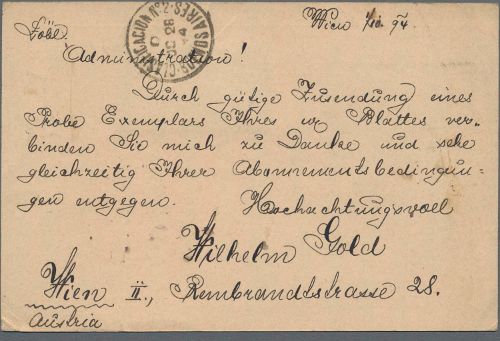 Wien 94.
Löbl.
Administration!
Durch gütige Zusendung eines
Probe Exemplars Ihres w Blattes ver-
binden Sie mich zu Danke und sehe
gleichzeitig Ihrer Abonnementsbedingun-
gen entgegen. Hochachtungsvoll
Wilhelm Gold
Wien II., Rembrandtstrasse 28.
Austria